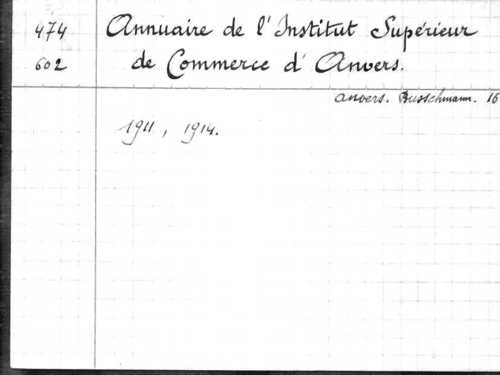 474 Annuaire de l'Institut Supérieur
602 de Commerce d'Anvers.
Anvers. Busschmann. 16
1911, 1914.